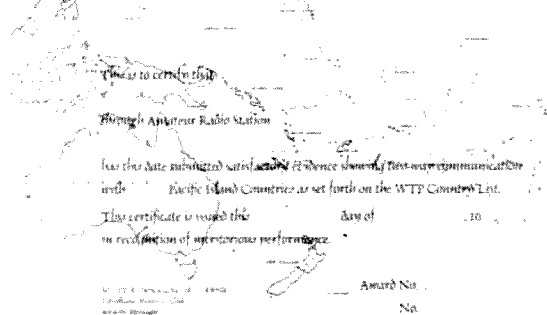 This is to certify that
through Amateur Radio Station
has this date submitted satisfactory evidence showing two-way communication
with Pacific Island Countries as set forth on the WTP Country List.
This certificate is issued this day of , 19
in recognition of meritorious performance.
Award No.
No.